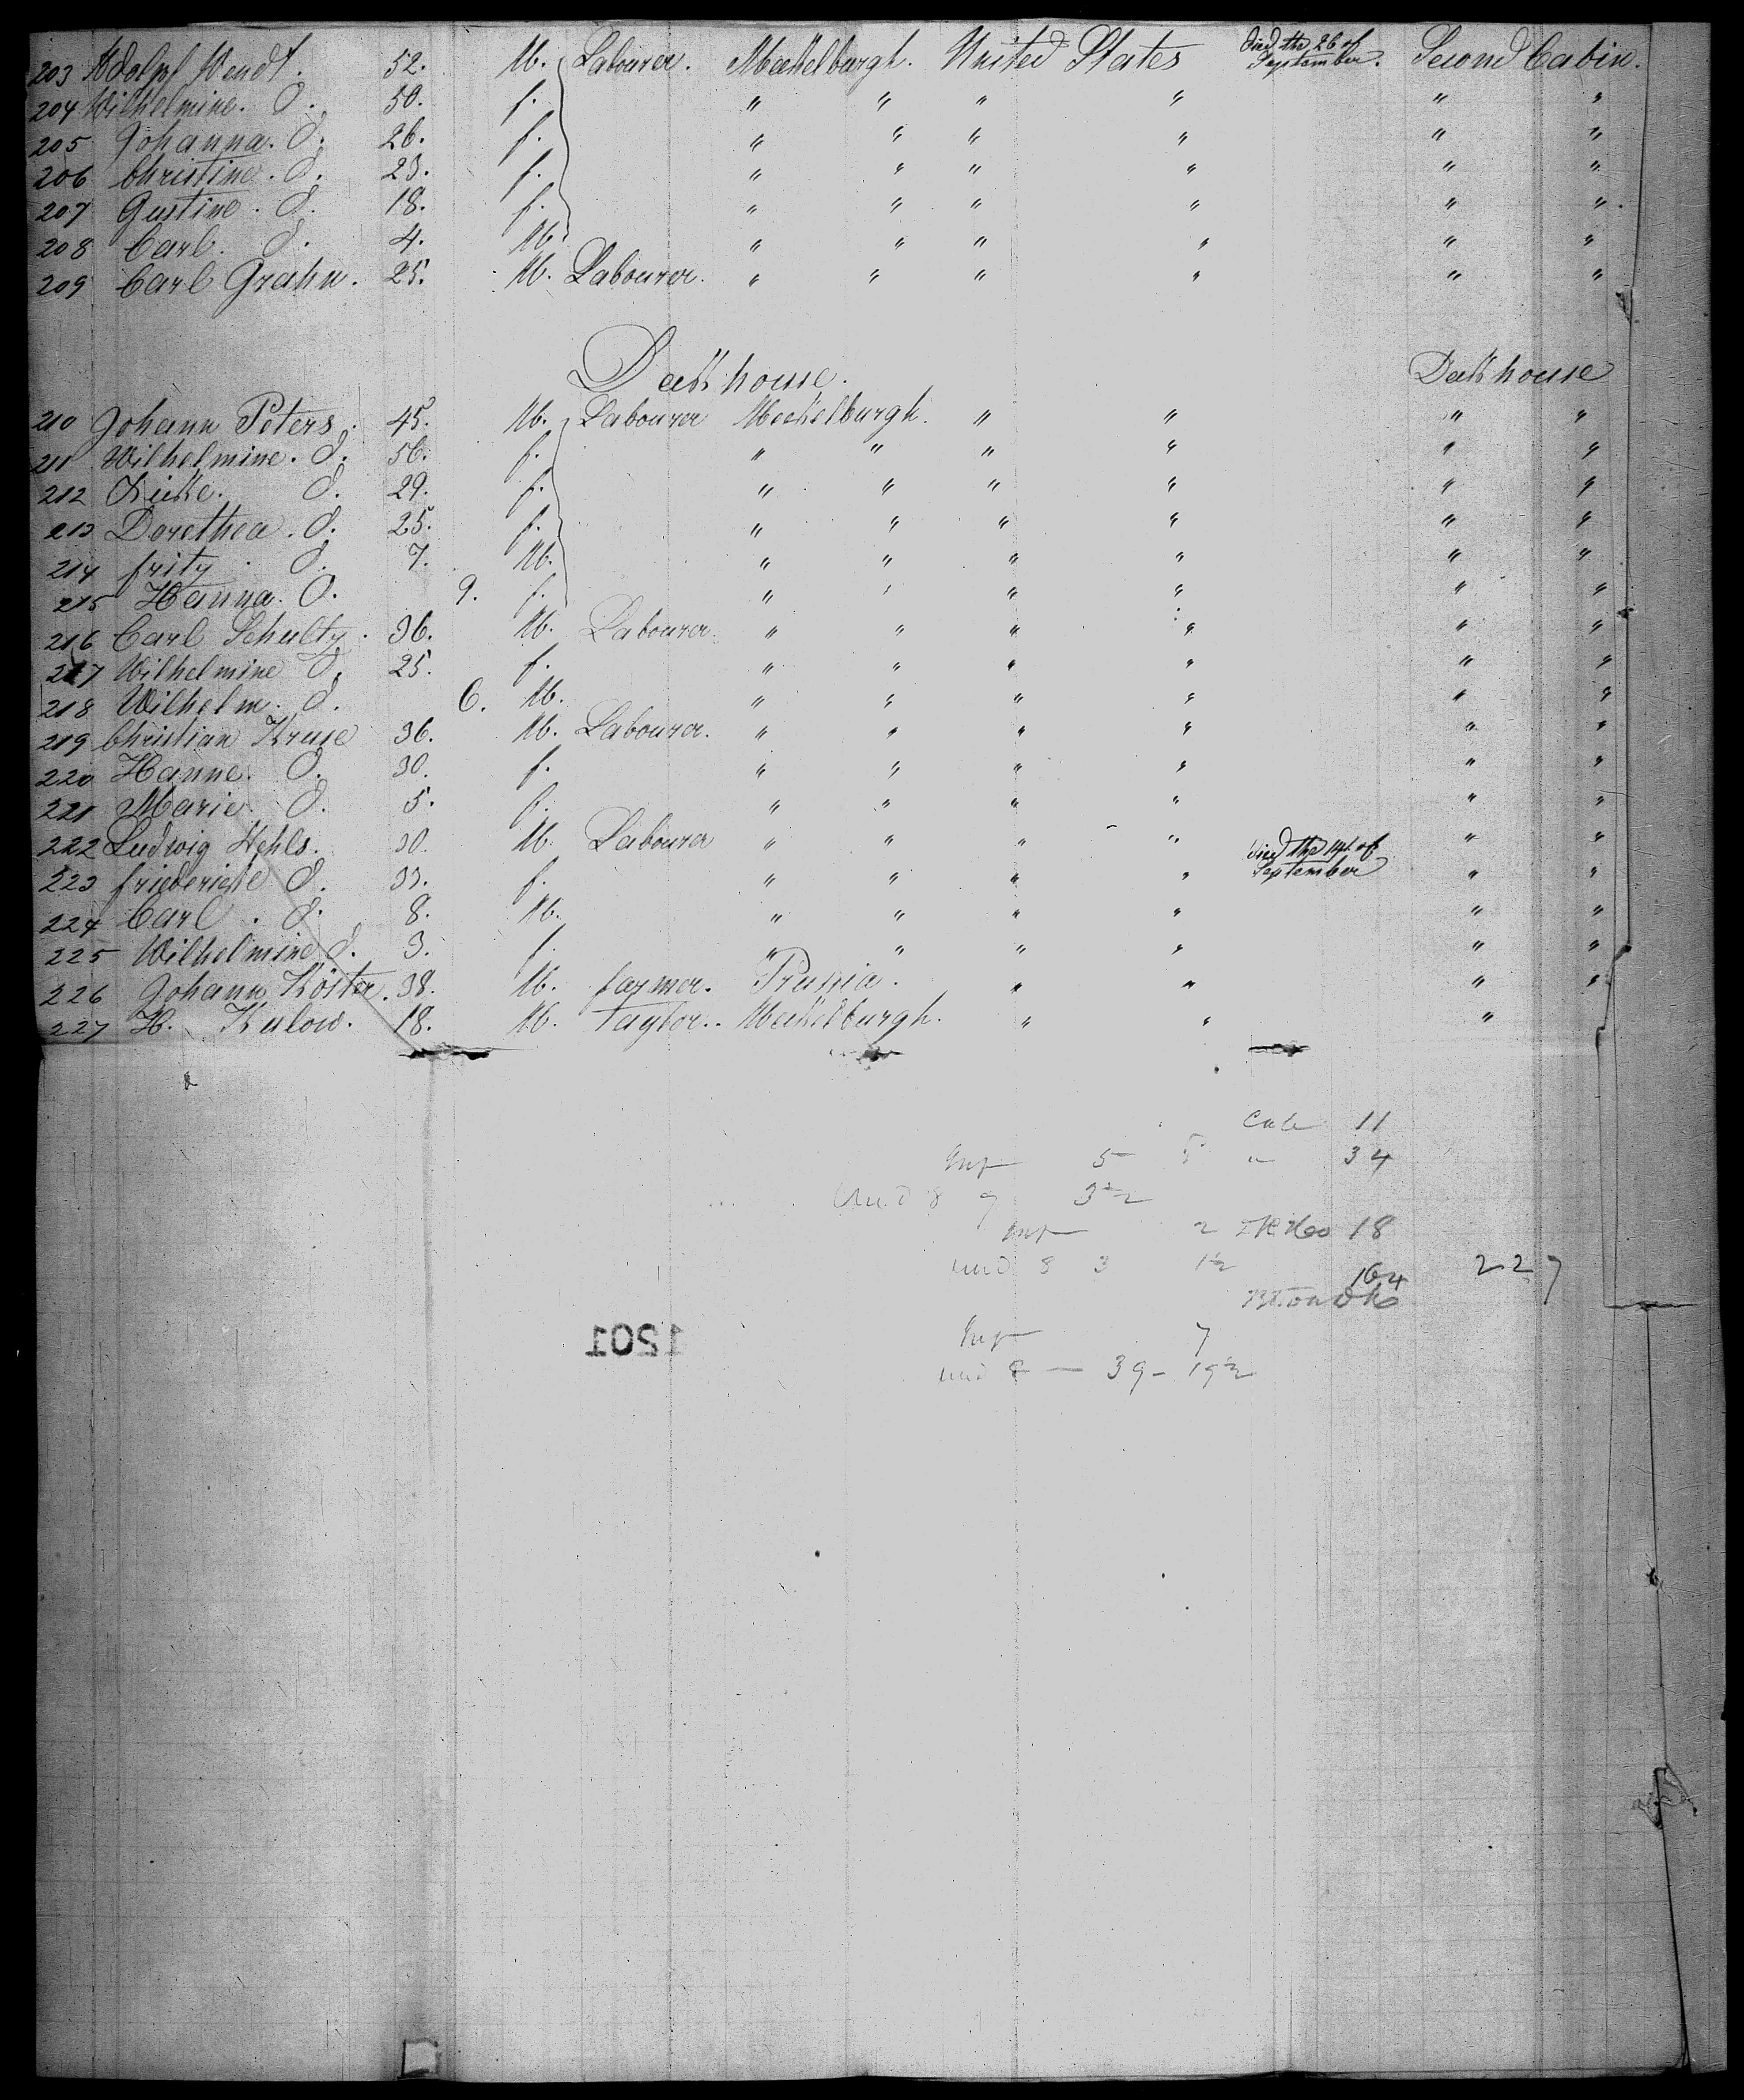 203 Adolph Wendt. 52. M. Labourer. Meckelburgh. United States Died the 26 of September. Second Cabin.
204 Wilhelmine. d. 50. f. " " " " " "
205 Johanna. d. 26. f. " " " " " "
206 Christine. d. 23. f. " " " " " "
207 Gustine. d. 18. f. " " " " " "
208 Carl. d. 4. M. " " " " " "
209 Carl Grahn. 25. M. Labourer. " " " " " "
Deckhouse. Deckhouse
210 Johann Peters. 45. M. Labourer Meckelburgh. " " " "
211 Wilhelmine. d. 56. f. " " " " " "
212 Rieke. d. 29. f. " " " " " "
213 Dorethea. d. 25. f. " " " " " "
214 fritz. d. 7. M. " " " " " "
215 Hanna. d. 9. f. " " " " " "
216 Carl Schultz. 36. M. Labourer. " " " " " "
217 Wilhelmine d. 25. f. " " " " " "
218 Wilhelm. d. 6. M. " " " " " "
219 Christian Kruse 36. M. Labourer. " " " " " "
220 Hanne. d. 30. f. " " " " " "
221 Marie. d. 5. f. " " " " " "
222 Ludwig Wehls. 30. M. Labourer " " " " " "
223 friederieke d. 33. f. " " " " Died the 14 of September " "
224 Carl. d. 8. M. " " " " " "
225 Wilhelmine d. 3. f. " " " " " "
226 Johann Köster. 38. M. farmer. Prussia. " " " "
227 H. Kulow. 18. M. Taylor.. Meckelburgh. " " "
Cab 11
Inf 5 5 " 34
Und 8 7 3½
Inf 2 DK Hoo 18
und 8 3 1½
164 227
Inf 7
und 8 — 39 - 19½
1201